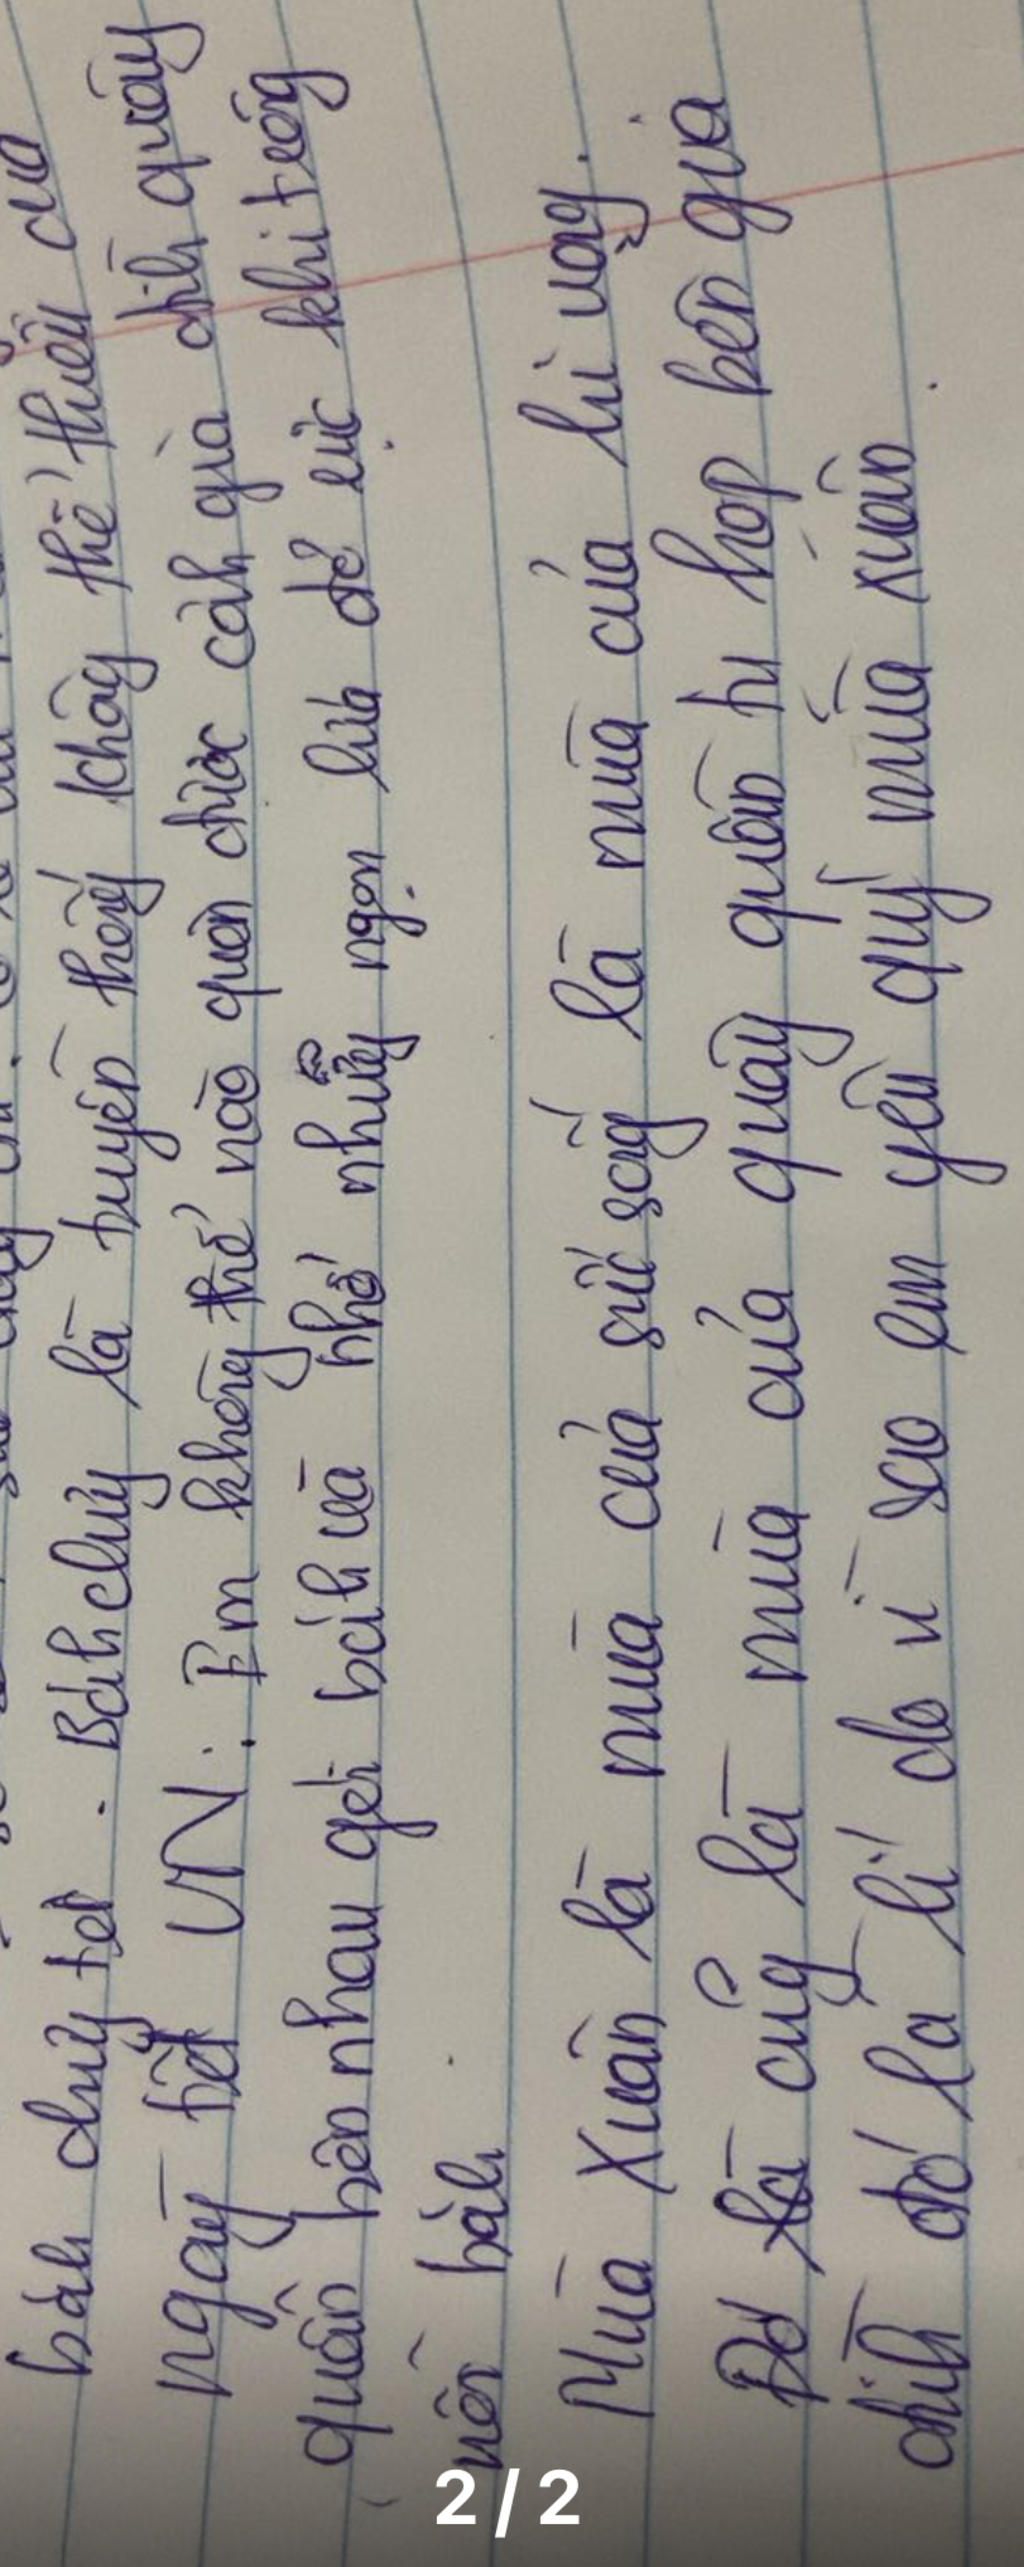 bánh chưng tết. Bánh chưng là truyền thống không thể thiếu của
ngày tết VN. Em không thể nào quên được cảnh gia đình quây
quần bên nhau gói bánh và nhớ những ngọn lửa đỏ rực khi trông
nồi bánh.
Mùa Xuân là mùa của sức sống là mùa của hi vọng.
Đó cũng là mùa của quây quần tụ họp bên gia
đình đó là lí do vì sao em yêu quý mùa xuân.
2/2